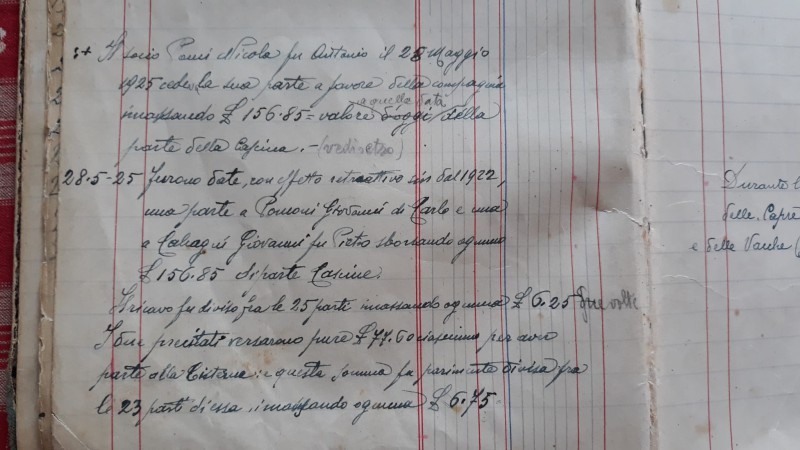 Il socio Pomi Nicola fu Antonio il 28 Maggio
1925 cedeva la sua parte a favore della compagnia
incassando £ 156.85 = valore d'oggi della
a quella data
parte della Cascina. - (vedi retro)
28-5-25 Furono date, con effetto retroattivo sin dal 1922,
una parte a Pomoni Giovanni di Carlo e una
a Calcagni Giovanni fu Pietro sborsando ognuno
£ 156.85 di parte Cascine.
Il ricavo fu diviso fra le 25 parte incassando ognuna £ 6.25 due volte
I due precitati versarono pure £ 77.60 ciascuno per avere
parte alla Cisterna: e questa somma fu parimente divisa fra
le 23 parti d'essa, incassando ognuna £ 6.75
Durante
delle Capre
e delle Vacche